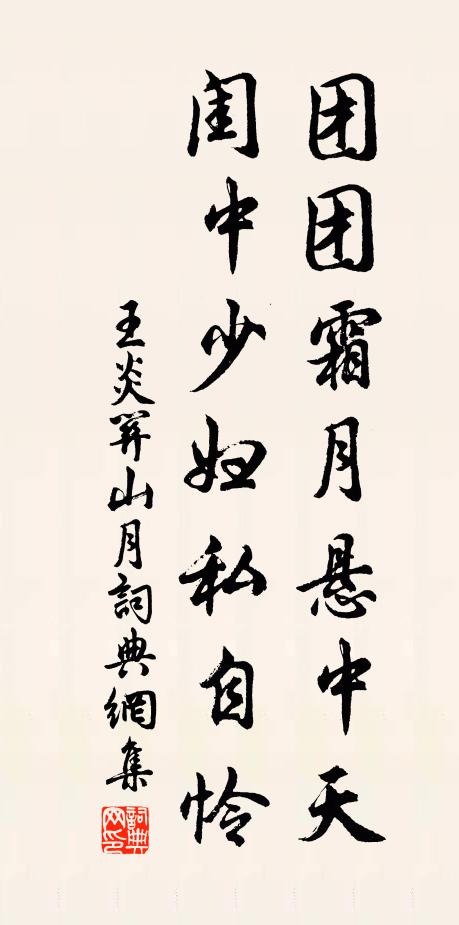 团团霜月悬中天
闺中少妇私自怜
王炎関山月詞典網集
詞典网印